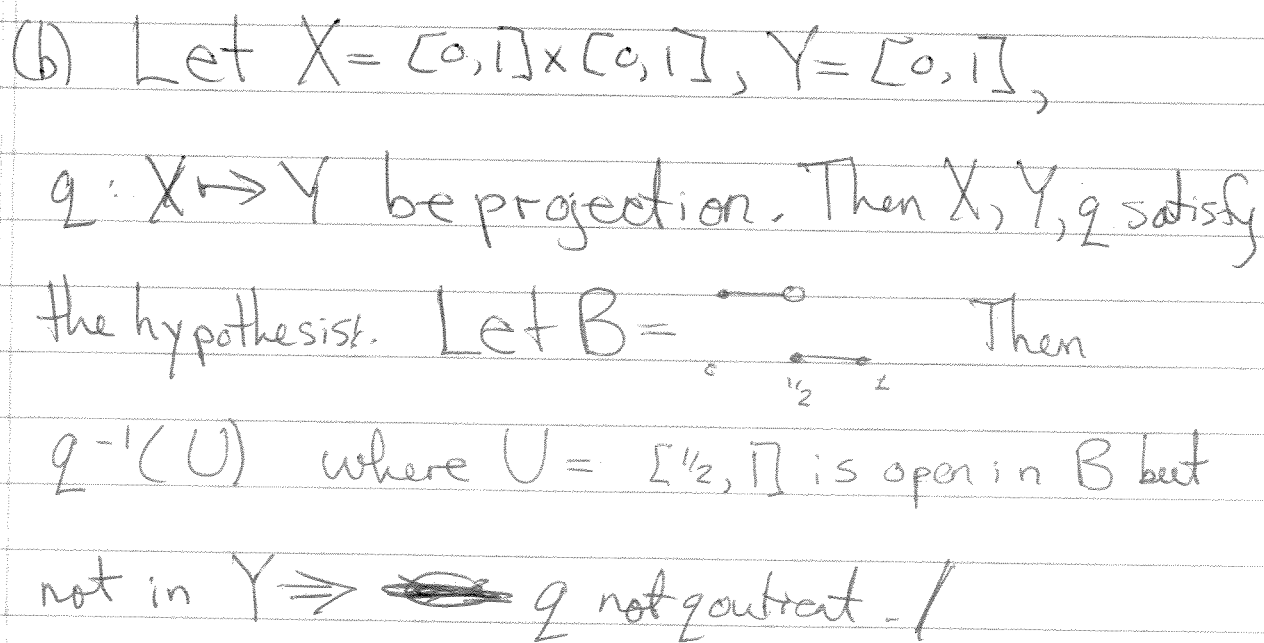 (b) Let X = [0,1] x [0,1], Y = [0,1],
q : X ↦ Y be projection. Then X, Y, q satisfy
the hypothesist. Let B = Then
0 1/2 1
q⁻¹(U) where U = [1/2, 1] is open in B but
not in Y ⇒ q not qoutient. /